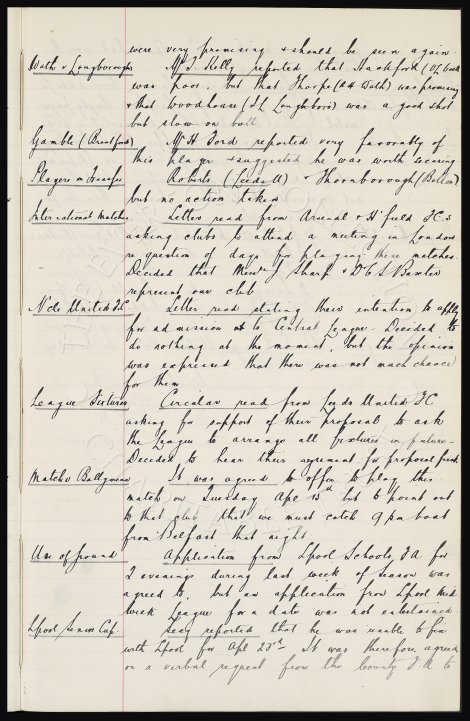 were very promising & should be seen again
Bath v Loughborough Mr J. Kelly reported that Hackford (OL Bath)
was poor, but that Thorpe (RH Bath) was promising
& that Woodhouse (IL Loughboro) was a good shot
but slow on ball
Gamble (Brentford) Mr H Ford reported very favorably of
this player & suggested he was worth securing
Players on Transfer Roberts (Leeds U) & Thornborough (Bolton)
but no action taken
International matches Letters read from Arsenal & H'field FCs
asking clubs to attend a meeting in London
re question of days for playing these matches
Decided that Messrs J Sharp & Dr C S Baxter
represent our club
N'cle United FC Letter read stating their intention to apply
for admission to Central League. Decided to
do nothing at the moment, but the opinion
was expressed that there was not much chance
for them
League Fixtures Circular read from Leeds United FC
asking for support of their proposal to ask
the League to arrange all fixtures in future.
Decided to hear their argument for proposal first.
Match v Ballymena It was agreed to offer to play this
match on Tuesday Apl but to point out
to that club that we must catch 9 pm boat
from Belfast that night.
Use of ground Application from Lpool Schools FA for
2 evenings during last week of Season was
agreed to, but an application from Lpool Mid
week League for a date was not entertained
Lpool Senior Cup. Secy reported that he was unable to fix
with Lpool for Apl 23rd. It was therefore agreed
on a verbal request from the County F.A to